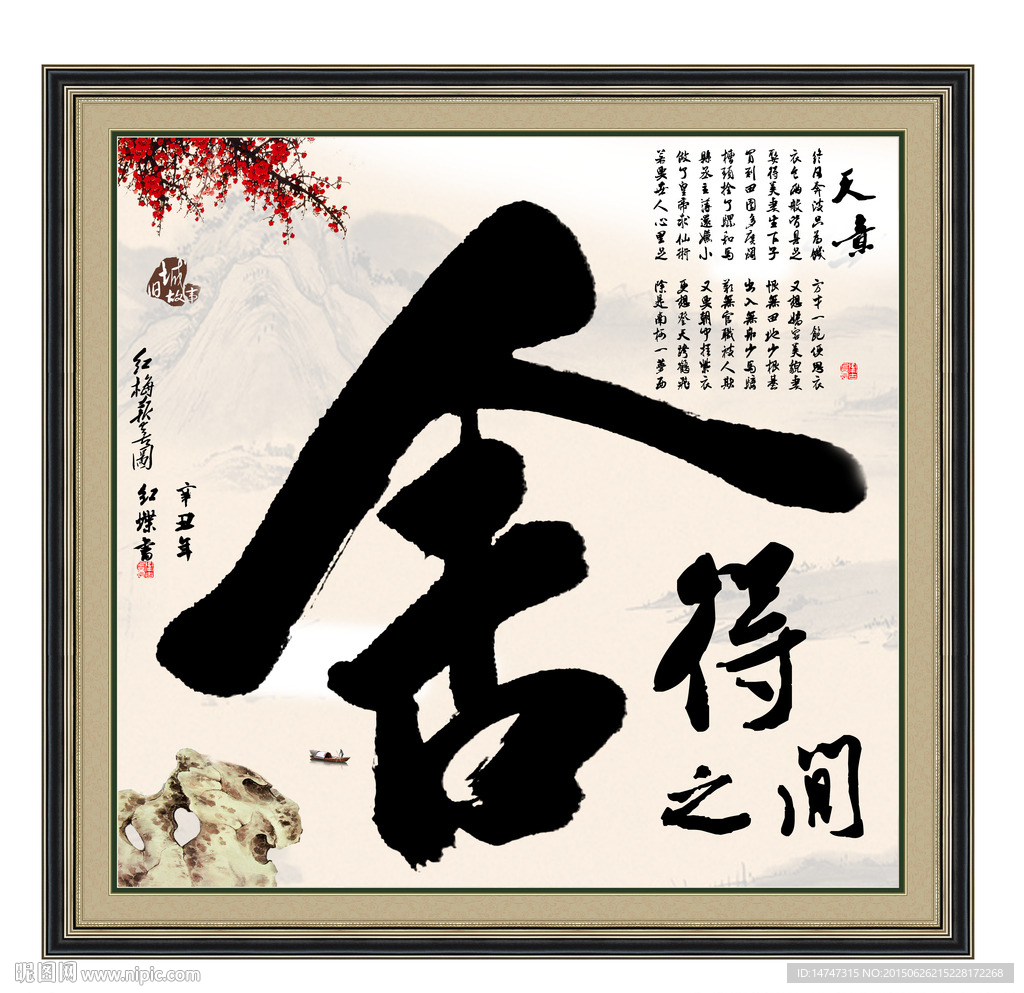 舍
得
之间
天意
終日奔波只為饑 方才一飽便思衣
衣食兩般皆具足 又想嬌容美貌妻
娶得美妻生下子 恨無田地少根基
買到田園多廣闊 出入無船少馬騎
槽頭拴了騾和馬 嘆無官職被人欺
縣丞主簿還嫌小 又要朝中掛紫衣
做了皇帝求仙術 更想登天跨鶴飛
若要世人心里足 除是南柯一夢西
旧城故事
红梅報喜圖
辛丑年
红蝶書
昵图网 www.nipic.com
ID:14747315 NO:20150626215228172268